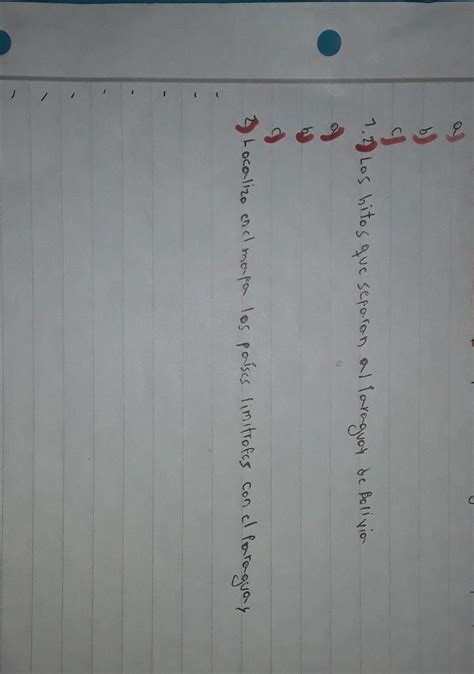 a)
b)
c)
1.2) Los hitos que separan al Paraguay de Bolivia
a)
b)
c)
2) Localizo en el mapa los países limitrofes con el Paraguay